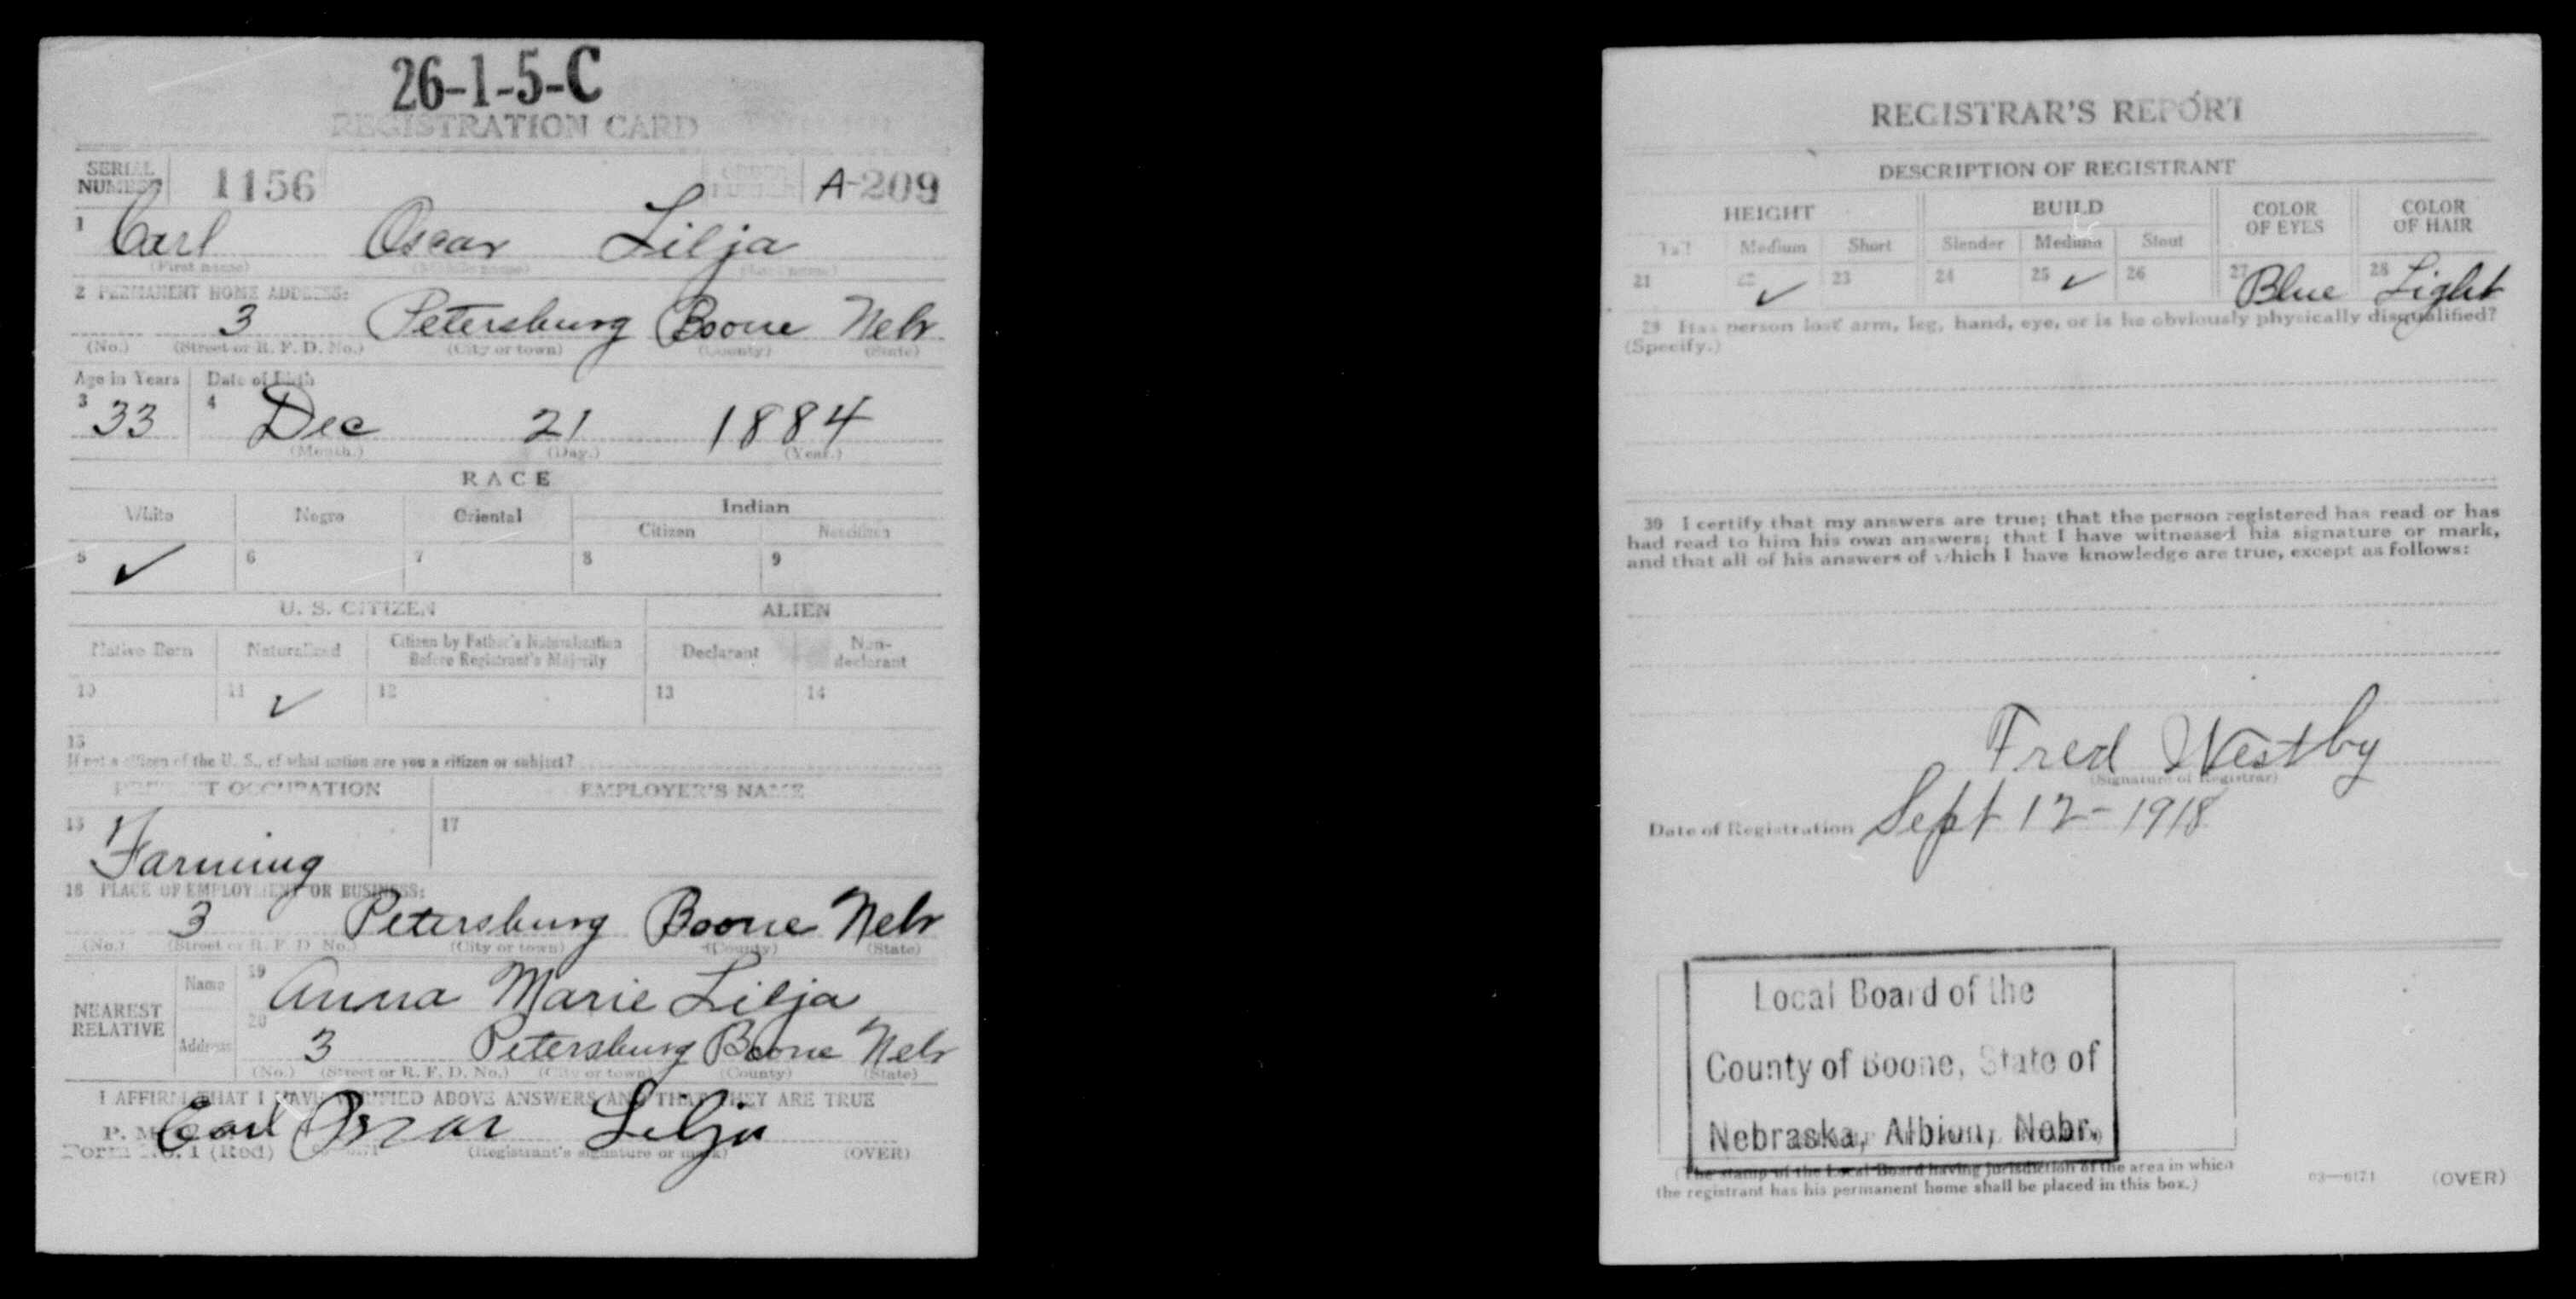 26-1-5-C
REGISTRATION CARD
SERIAL NUMBER 1156 ORDER NUMBER A-209
1 Carl Oscar Lilja
(First name) (Middle name) (Last name)
2 PERMANENT HOME ADDRESS:
3 Petersburg Boone Nebr
(No.) (Street or R. F. D. No.) (City or town) (County) (State)
Age in Years Date of Birth
3 33 4 Dec 21 1884
(Month.) (Day.) (Year.)
RACE
White Negro Oriental Indian
Citizen Noncitizen
5 ✓ 6 7 8 9
U. S. CITIZEN ALIEN
Native Born Naturalized Citizen by Father's Naturalization Before Registrant's Majority Declarant Non-declarant
10 11 ✓ 12 13 14
15
If not a citizen of the U. S., of what nation are you a citizen or subject?
PRESENT OCCUPATION EMPLOYER'S NAME
16 Farming 17
18 PLACE OF EMPLOYMENT OR BUSINESS:
3 Petersburg Boone Nebr
(No.) (Street or R. F. D. No.) (City or town) (County) (State)
NEAREST RELATIVE Name 19 Anna Marie Lilja
Address 20 3 Petersburg Boone Nebr
(No.) (Street or R. F. D. No.) (City or town) (County) (State)
I AFFIRM THAT I HAVE VERIFIED ABOVE ANSWERS AND THAT THEY ARE TRUE
P. M.
Carl Oscar Lilja
Form No. 1 (Red) (Registrant's signature or mark) (OVER)
REGISTRAR'S REPORT
DESCRIPTION OF REGISTRANT
HEIGHT BUILD COLOR OF EYES COLOR OF HAIR
Tall Medium Short Slender Medium Stout
21 22 ✓ 23 24 25 ✓ 26 27 Blue 28 Light
29 Has person lost arm, leg, hand, eye, or is he obviously physically disqualified?
(Specify.)
30 I certify that my answers are true; that the person registered has read or has
had read to him his own answers; that I have witnessed his signature or mark,
and that all of his answers of which I have knowledge are true, except as follows:
Fred Westby
(Signature of Registrar)
Date of Registration Sept 12-1918
Local Board of the
County of Boone, State of
Nebraska, Albion, Nebr.
(The stamp of the Local Board having jurisdiction of the area in which
the registrant has his permanent home shall be placed in this box.)
03—6171 (OVER)